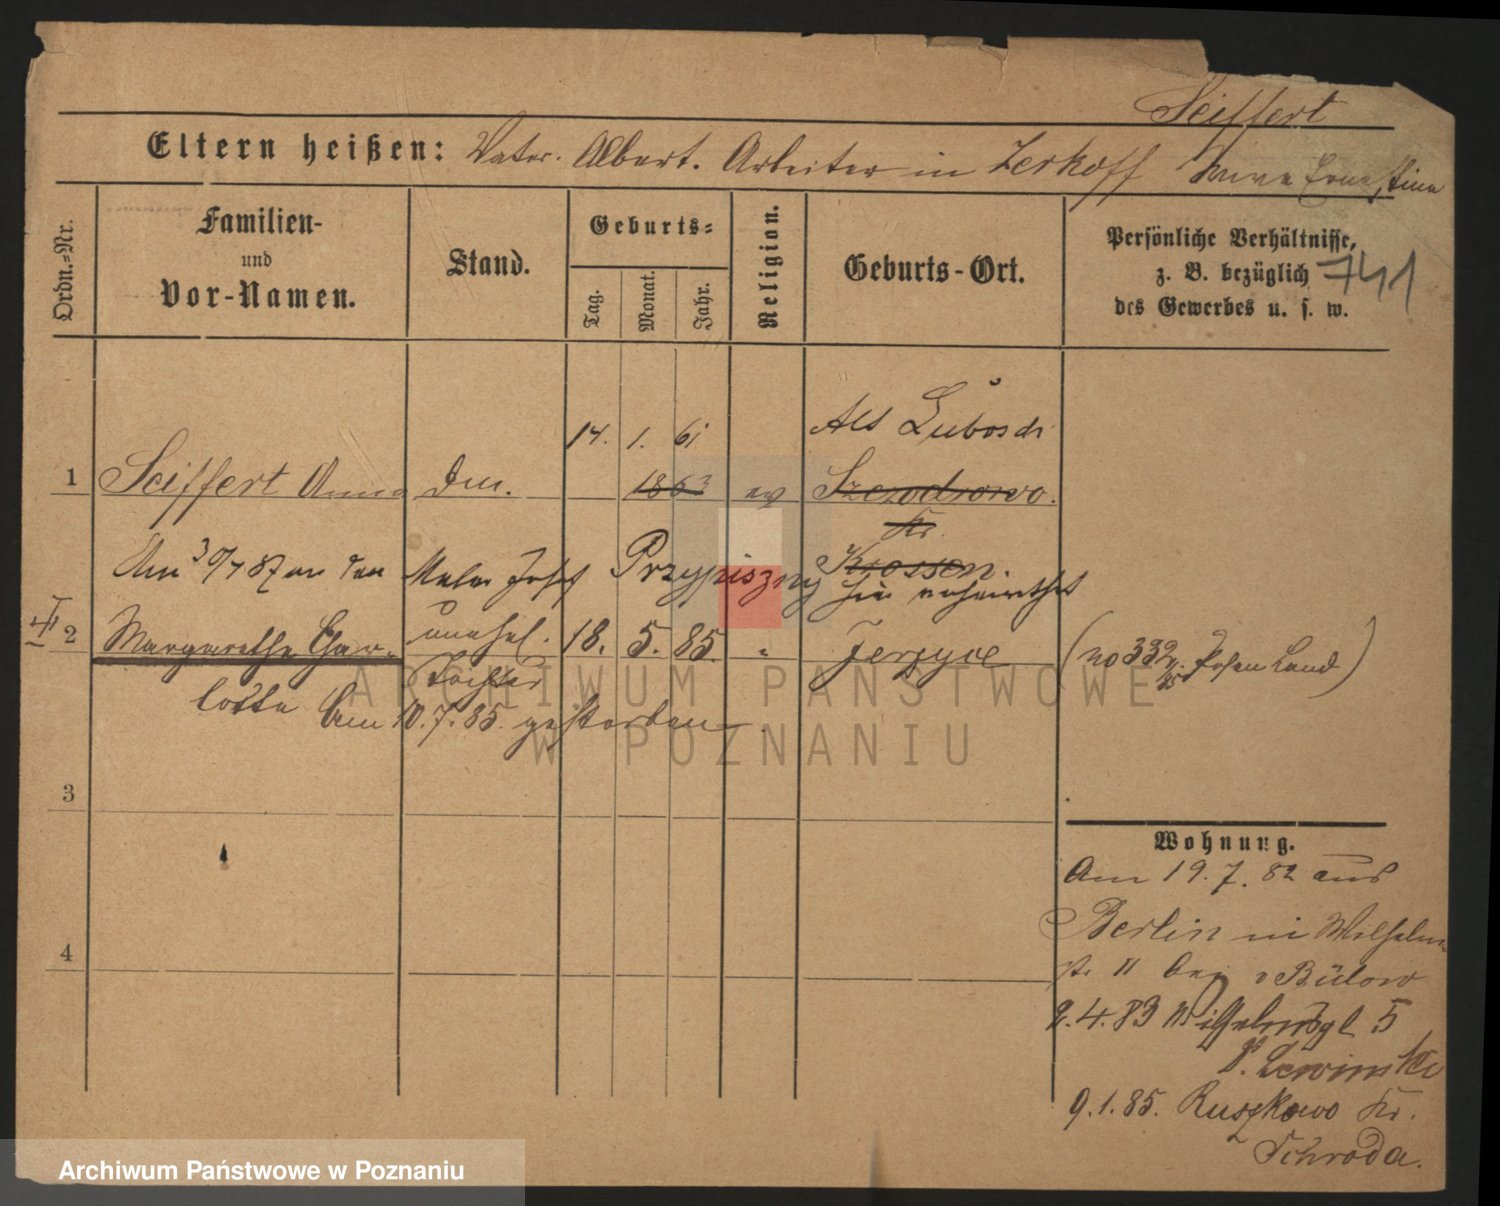 Seiffert
Eltern heißen: Vater. Albert. Arbeiter in Zerkoff Anna Ernestine
Ordn.-Nr.
Familien-
und
Vor-Namen.
Stand.
Geburts-
Tag.
Monat.
Jahr.
Religion.
Geburts-Ort.
Persönliche Verhältnisse,
z. B. bezüglich
des Gewerbes u. s. w.
741
14. 1. 61 Alt Lubosch
1 Seiffert Anna 1863 ev Szczodrowo.
Kr.
Krossen.
Am 30/7 87 an den Maler Josef Przypiszny hier verheirathet
2 Margarethe Char- unehel. 18. 5. 85. " Jerzyce (No 332 Posen Land)
lotte Tochter
Am 10. 7. 85. gestorben
3
4
Wohnung.
Am 19. 7. 82 aus
Berlin in Wilhelm
str 11 bei v Bülow
2. 4. 83 Wilhelmspl 5
b. Lewinski
9. 1. 85. Ruszkowo Kr.
Schroda.
ARCHIWUM PAŃSTWOWE
W POZNANIU
Archiwum Państwowe w Poznaniu